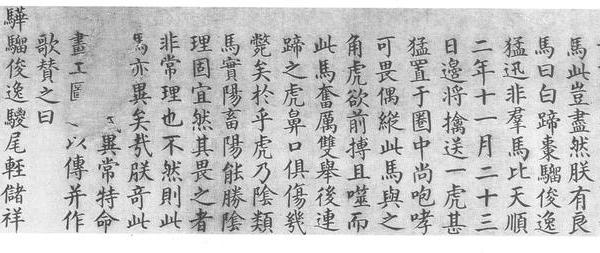 馬此豈盡然朕有良
馬曰白蹄棗騮俊逸
猛迅非羣馬比天順
二年十一月二十三
日邊将擒送一虎甚
猛置于圈中尚咆哮
可畏偶縱此馬與之
角虎欲前搏且噬而
此馬奮厲雙舉後連
蹄之虎鼻口俱傷幾
斃矣於乎虎乃陰類
馬實陽畜陽能勝陰
理固宜然其畏之者
非常理也不然則此
馬亦異矣哉朕奇此
異常特命
畫工以傳并作
歌贊之曰
驊騮俊逸騣尾輕儲祥